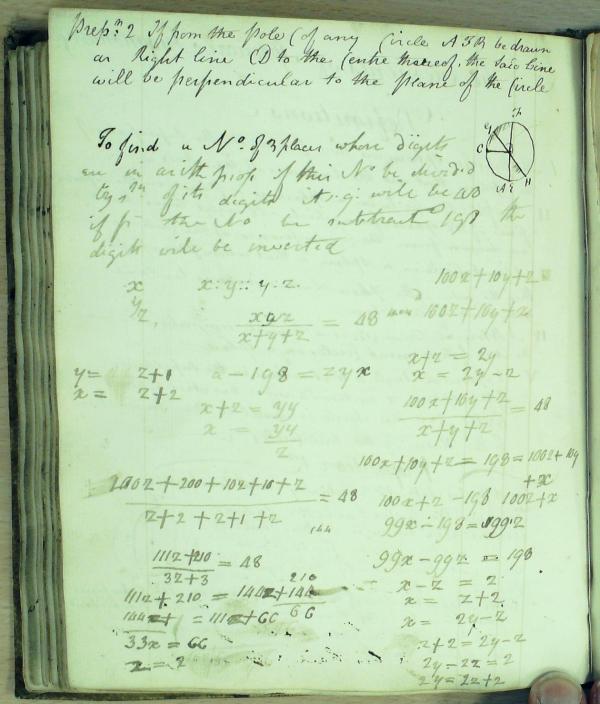 Prop.n 2 If from the Pole C of any Circle AFB be drawn
a Right line CD to the Centre thereof, the said line
will be perpendicular to the plane of the Circle
To find a No. of 3 places whose digits
are in arith prog if this No be divided
by sm of its digits the q. will be 48
if fm the No be subtracted 198 the
digits will be inverted
x x:y::y:z
y
z,
xyz
x+y+z = 48
y= z+1
x= z+2
a-198=zyx
x+z = yy
x = yy
z
100z+200+10z+10+z
z+2+z+1+z = 48
144
111z+210
3z+3 = 48
210
111z+210 = 144z+144
66
144z+ = 111z+66
33x=66
z=2
100x+10y+z
100z+10y+z
x+z = 2y
x = 2y-z
100x+10y+z
x+y+z = 48
100x+10y+z = 198=100z+10y
+x
100x+z-198 100z+x
99x-198=99z
99x-99z = 198
x-z = 2
x= z+2
x= 2y-z
z+2=2y-z
2y-2z=2
2y=2z+2